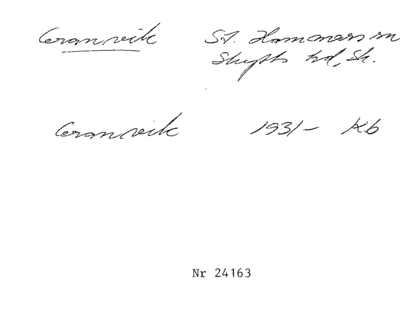 Granvik St. Hammars sn
Skytts hd, Sk.
Granvik 1931- Kb
Nr 24163